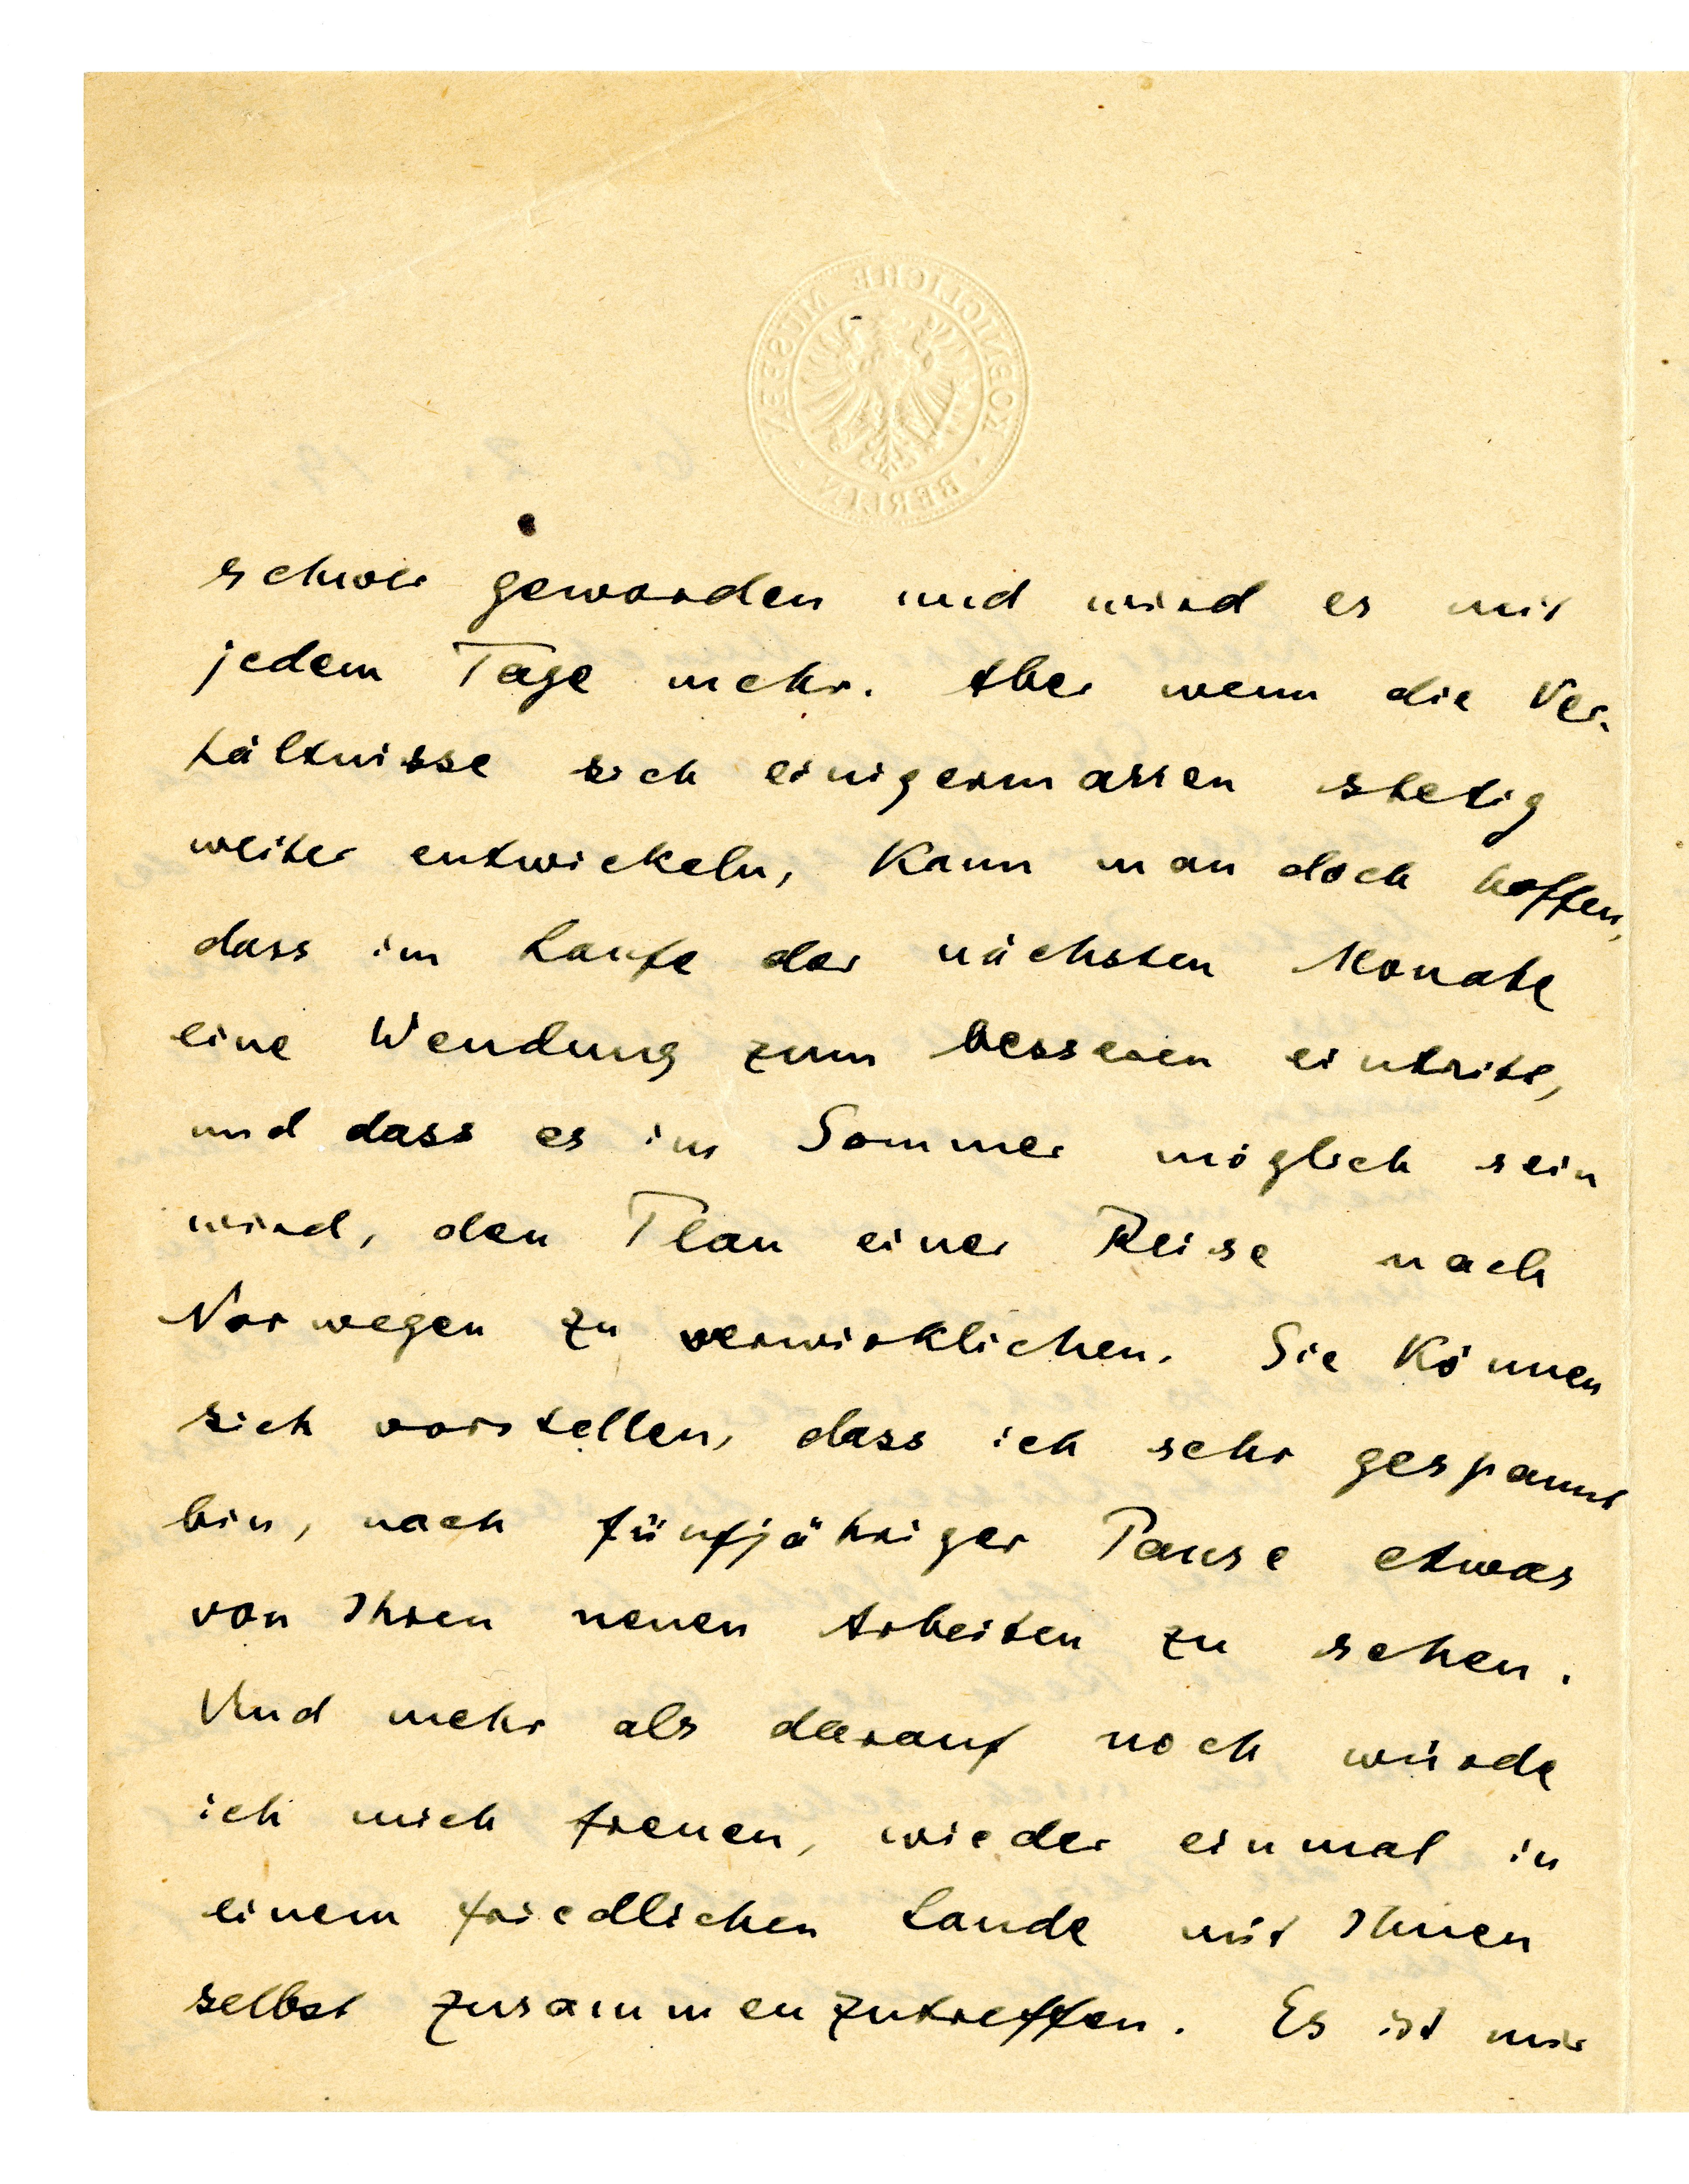 KOENIGLICHE MUSEEN · BERLIN ·
6. 2. 19.
schwer geworden und wird es mit
jedem Tage mehr. Aber wenn die Ver-
hältnisse sich einigermassen stetig
weiter entwickeln, kann man doch hoffen,
dass im Laufe der nächsten Monate
eine Wendung zum besseren eintritt,
und dass es im Sommer möglich sein
wird, den Plan einer Reise nach
Norwegen zu verwirklichen. Sie können
sich vorstellen, dass ich sehr gespannt
bin, nach fünfjähriger Pause etwas
von Ihren neuen Arbeiten zu sehen.
Und mehr als darauf noch würde
ich mich freuen, wieder einmal in
einem friedlichen Lande mit Ihnen
selbst zusammenzutreffen. Es ist mir